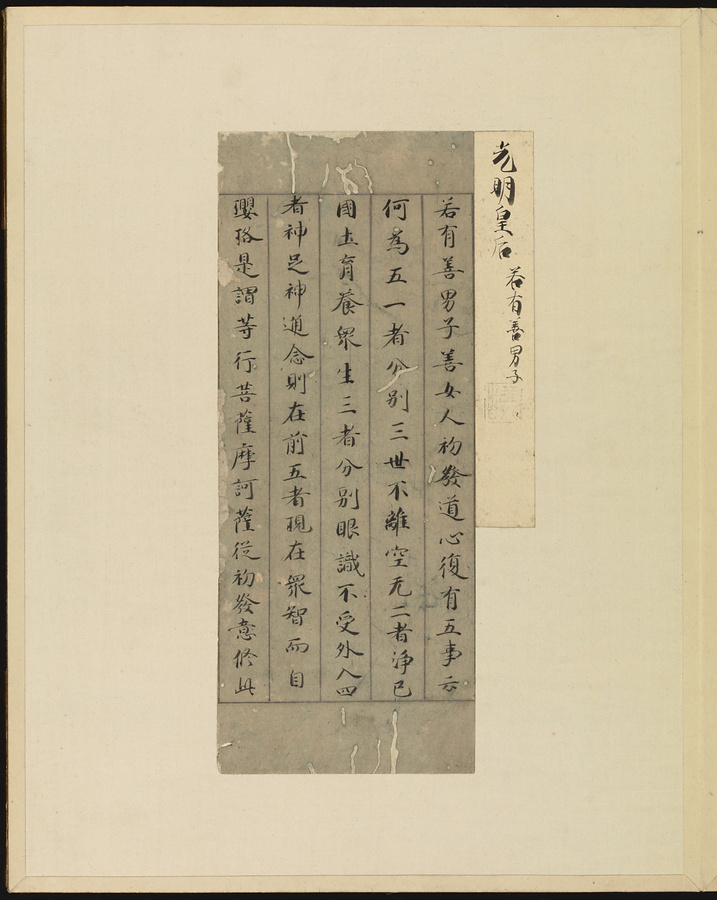 光明皇后 若有善男子
若有善男子善女人初發道心復有五事云
何為五一者分別三世不離空无二者淨己
國土育養衆生三者分別眼識不受外入四
者神足神通念則在前五者現在衆智而自
瓔珞是謂等行菩薩摩訶薩從初發意修此